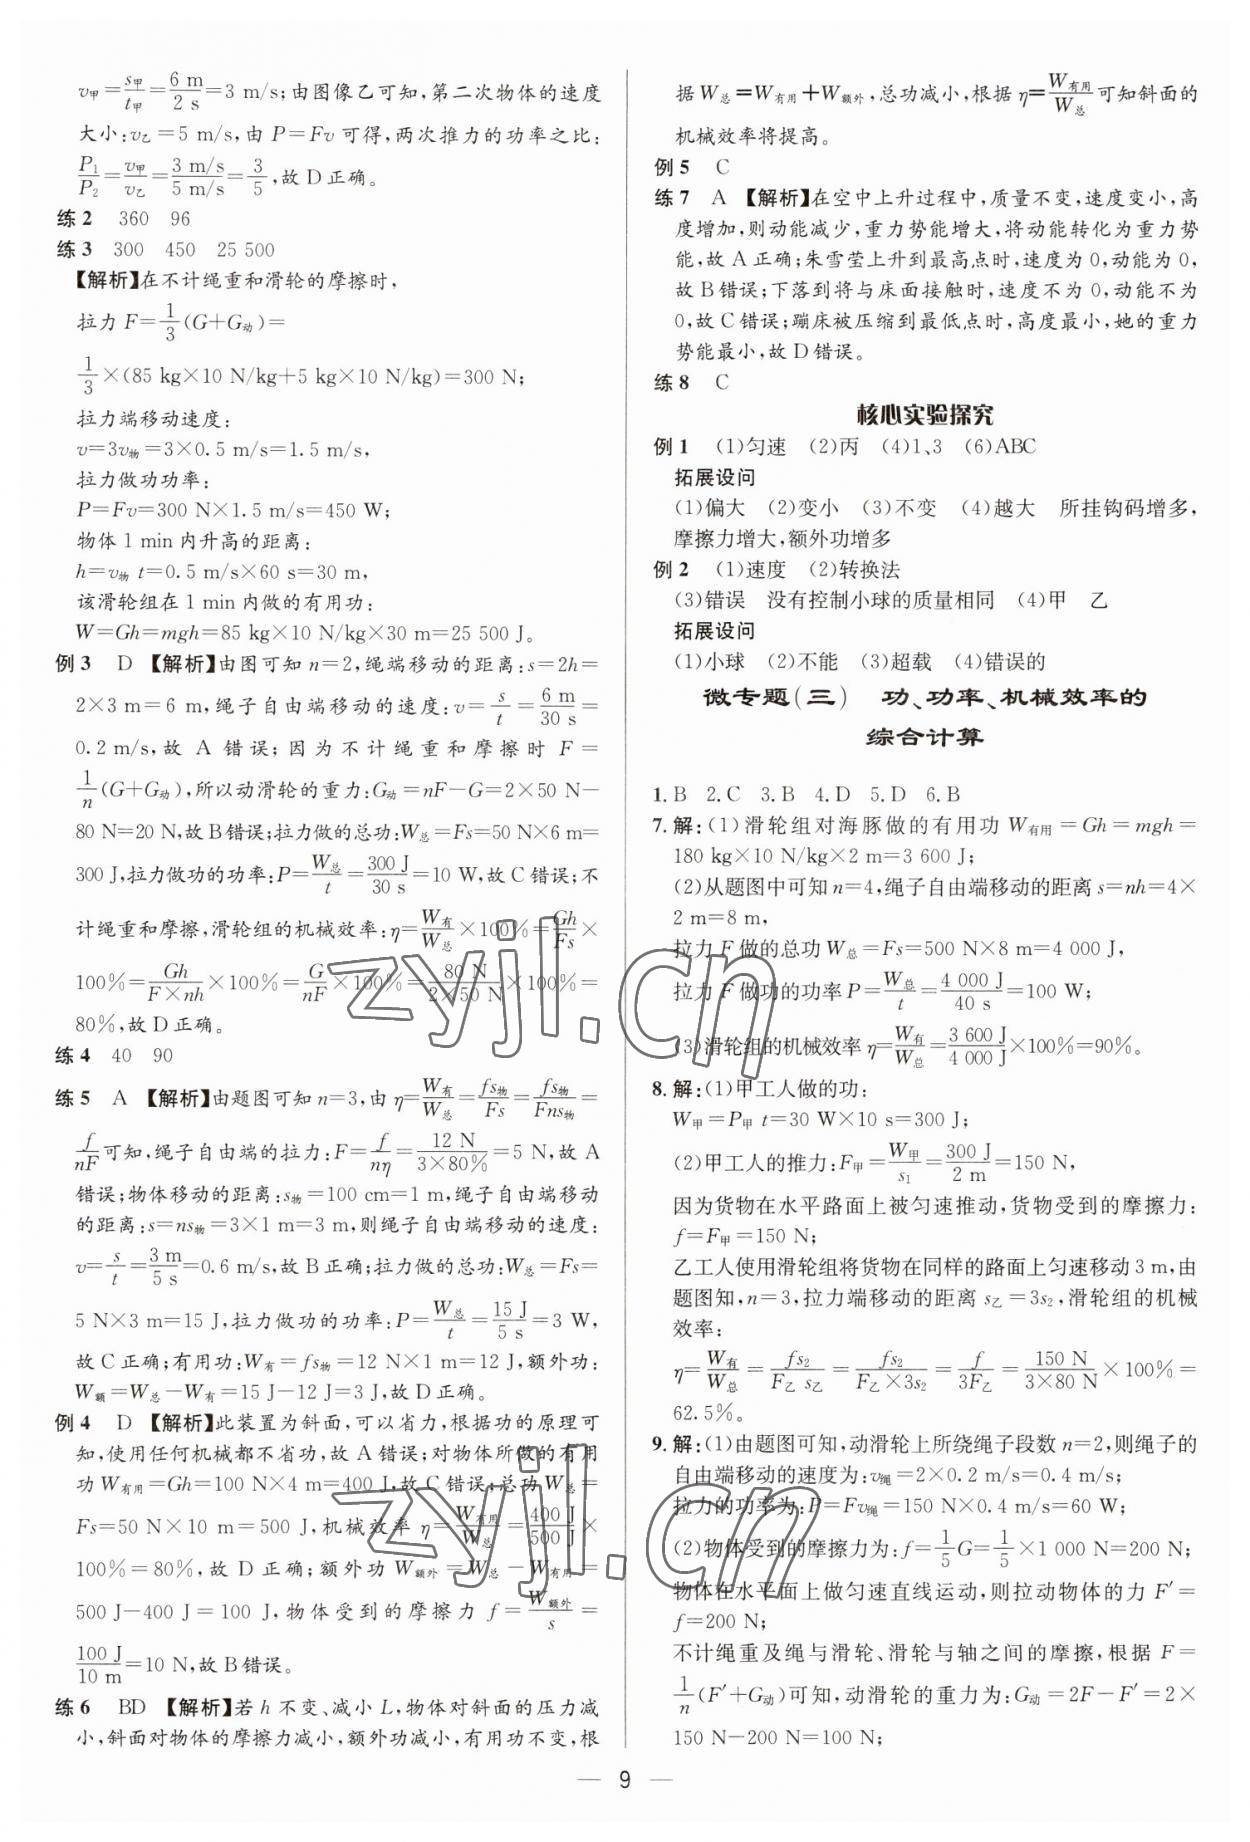 v甲=s甲/t甲=6 m/2 s=3 m/s;由图像乙可知,第二次物体的速度
大小:v乙=5 m/s,由 P=Fv 可得,两次推力的功率之比:
P₁/P₂=v甲/v乙=(3 m/s)/(5 m/s)=3/5,故 D 正确。
练 2 360 96
练 3 300 450 25 500
【解析】在不计绳重和滑轮的摩擦时,
拉力 F=1/3(G+G动)=
1/3×(85 kg×10 N/kg+5 kg×10 N/kg)=300 N;
拉力端移动速度:
v=3v物=3×0.5 m/s=1.5 m/s,
拉力做功功率:
P=Fv=300 N×1.5 m/s=450 W;
物体 1 min 内升高的距离:
h=v物 t=0.5 m/s×60 s=30 m,
该滑轮组在 1 min 内做的有用功:
W=Gh=mgh=85 kg×10 N/kg×30 m=25 500 J。
例 3 D 【解析】由图可知 n=2,绳端移动的距离:s=2h=
2×3 m=6 m,绳子自由端移动的速度:v=s/t=6 m/30 s=
0.2 m/s,故 A 错误;因为不计绳重和摩擦时 F=
1/n(G+G动),所以动滑轮的重力:G动=nF-G=2×50 N-
80 N=20 N,故 B 错误;拉力做的总功:W总=Fs=50 N×6 m=
300 J,拉力做功的功率:P=W总/t=300 J/30 s=10 W,故 C 错误;不
计绳重和摩擦,滑轮组的机械效率:η=W有/W总×100%=Gh/Fs×
100%=Gh/(F×nh)×100%=G/nF×100%=80 N/(2×50 N)×100%=
80%,故 D 正确。
练 4 40 90
练 5 A 【解析】由题图可知 n=3,由 η=W有/W总=fs物/Fs=fs物/Fns物=
f/nF可知,绳子自由端的拉力:F=f/nη=12 N/(3×80%)=5 N,故 A
错误;物体移动的距离:s物=100 cm=1 m,绳子自由端移动
的距离:s=ns物=3×1 m=3 m,则绳子自由端移动的速度:
v=s/t=3 m/5 s=0.6 m/s,故 B 正确;拉力做的总功:W总=Fs=
5 N×3 m=15 J,拉力做功的功率:P=W总/t=15 J/5 s=3 W,
故 C 正确;有用功:W有=fs物=12 N×1 m=12 J,额外功:
W额=W总-W有=15 J-12 J=3 J,故 D 正确。
例 4 D 【解析】此装置为斜面,可以省力,根据功的原理可
知,使用任何机械都不省功,故 A 错误;对物体所做的有用
功 W有用=Gh=100 N×4 m=400 J,故 C 错误;总功 W总=
Fs=50 N×10 m=500 J,机械效率 η=W有用/W总=400 J/500 J×
100%=80%,故 D 正确;额外功 W额外=W总-W有用=
500 J-400 J=100 J,物体受到的摩擦力 f=W额外/s=
100 J/10 m=10 N,故 B 错误。
练 6 BD 【解析】若 h 不变、减小 L,物体对斜面的压力减
小,斜面对物体的摩擦力减小,额外功减小,有用功不变,根
据 W总=W有用+W额外,总功减小,根据 η=W有用/W总可知斜面的
机械效率将提高。
例 5 C
练 7 A 【解析】在空中上升过程中,质量不变,速度变小,高
度增加,则动能减少,重力势能增大,将动能转化为重力势
能,故 A 正确;朱雪莹上升到最高点时,速度为 0,动能为 0,
故 B 错误;下落到将与床面接触时,速度不为 0,动能不为
0,故 C 错误;蹦床被压缩到最低点时,高度最小,她的重力
势能最小,故 D 错误。
练 8 C
核心实验探究
例 1 (1)匀速 (2)丙 (4)1、3 (6)ABC
拓展设问
(1)偏大 (2)变小 (3)不变 (4)越大 所挂钩码增多,
摩擦力增大,额外功增多
例 2 (1)速度 (2)转换法
(3)错误 没有控制小球的质量相同 (4)甲 乙
拓展设问
(1)小球 (2)不能 (3)超载 (4)错误的
微专题(三) 功、功率、机械效率的
综合计算
1. B 2. C 3. B 4. D 5. D 6. B
7. 解:(1)滑轮组对海豚做的有用功 W有用=Gh=mgh=
180 kg×10 N/kg×2 m=3 600 J;
(2)从题图中可知 n=4,绳子自由端移动的距离 s=nh=4×
2 m=8 m,
拉力 F 做的总功 W总=Fs=500 N×8 m=4 000 J,
拉力 F 做功的功率 P=W总/t=4 000 J/40 s=100 W;
(3)滑轮组的机械效率 η=W有/W总=3 600 J/4 000 J×100%=90%。
8. 解:(1)甲工人做的功:
W甲=P甲 t=30 W×10 s=300 J;
(2)甲工人的推力:F甲=W甲/s₁=300 J/2 m=150 N,
因为货物在水平路面上被匀速推动,货物受到的摩擦力:
f=F甲=150 N;
乙工人使用滑轮组将货物在同样的路面上匀速移动 3 m,由
题图知,n=3,拉力端移动的距离 s乙=3s₂,滑轮组的机械
效率:
η=W有/W总=fs₂/F乙 s乙=fs₂/(F乙×3s₂)=f/3F乙=150 N/(3×80 N)×100%=
62.5%。
9. 解:(1)由题图可知,动滑轮上所绕绳子段数 n=2,则绳子的
自由端移动的速度为:v绳=2×0.2 m/s=0.4 m/s;
拉力的功率为:P=Fv绳=150 N×0.4 m/s=60 W;
(2)物体受到的摩擦力为:f=1/5G=1/5×1 000 N=200 N;
物体在水平面上做匀速直线运动,则拉动物体的力 F′=
f=200 N;
不计绳重及绳与滑轮、滑轮与轴之间的摩擦,根据 F=
1/n(F′+G动)可知,动滑轮的重力为:G动=2F-F′=2×
150 N-200 N=100 N;
— 9 —
zyjl.cn
zyjl.cn